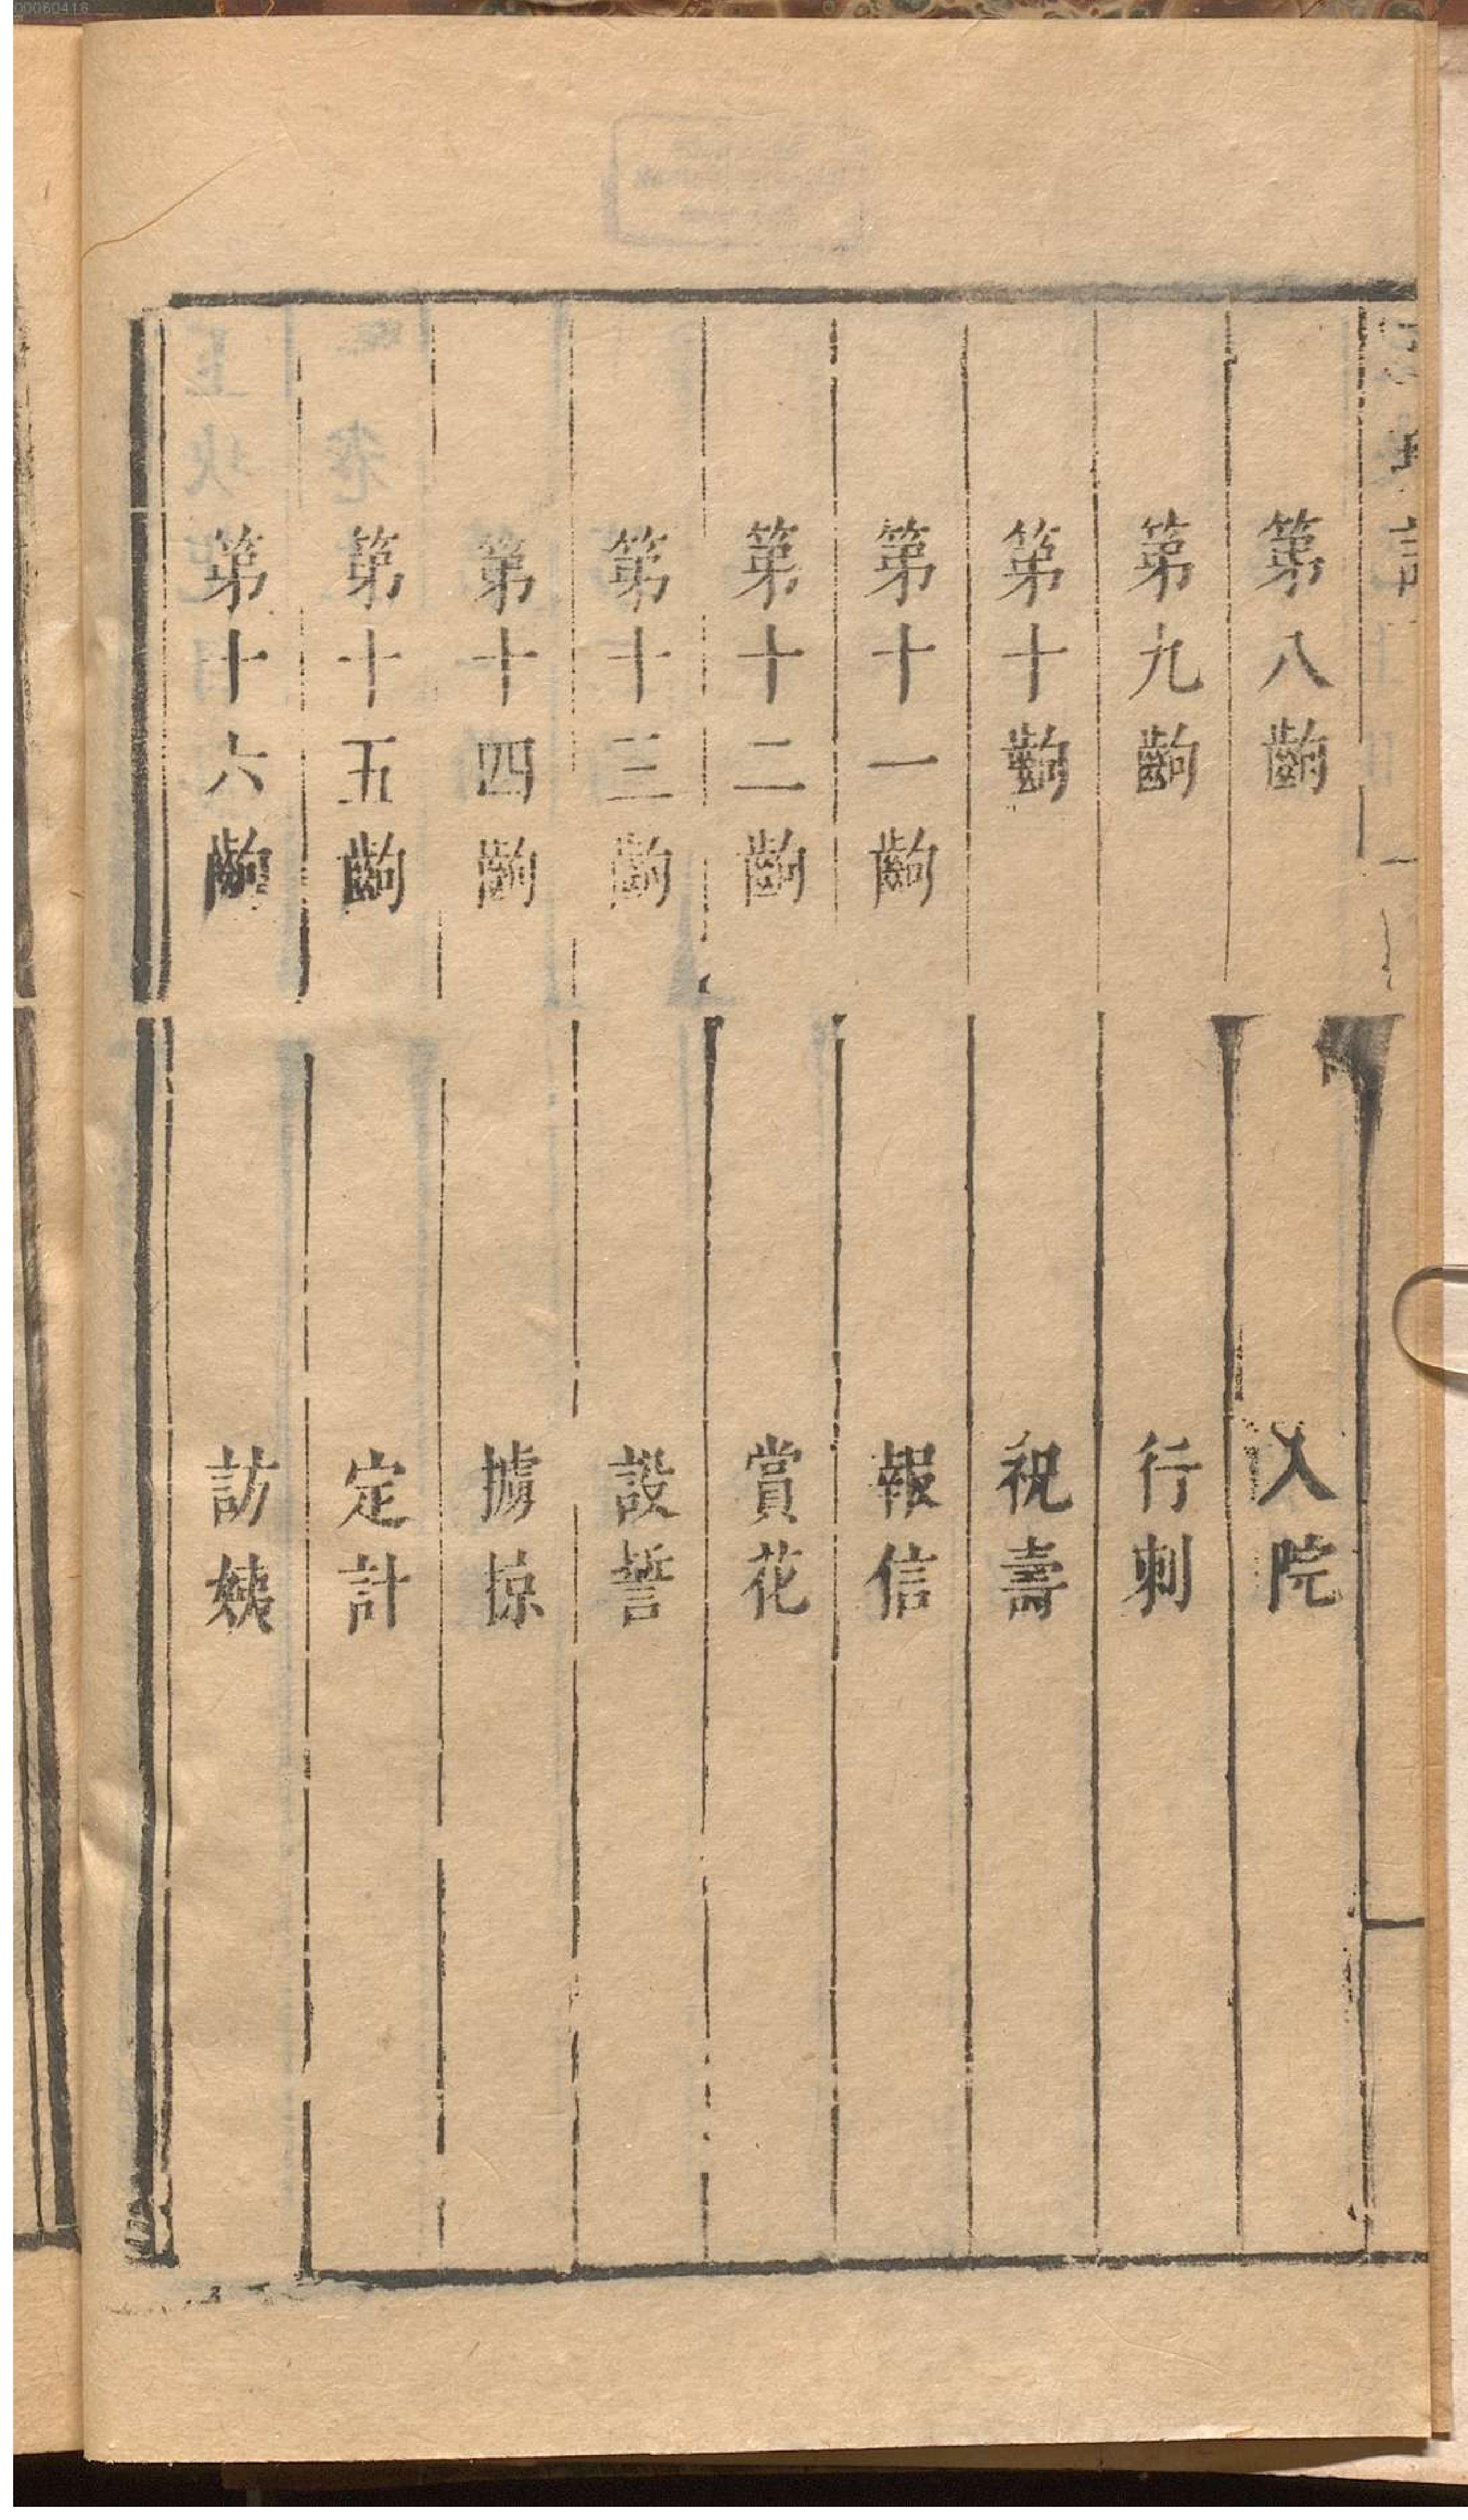 00060418
第八齣 入院
第九齣 行刺
第十齣 祝壽
第十一齣 報信
第十二齣 賞花
第十三齣 設誓
第十四齣 擄掠
第十五齣 定計
第十六齣 訪姨